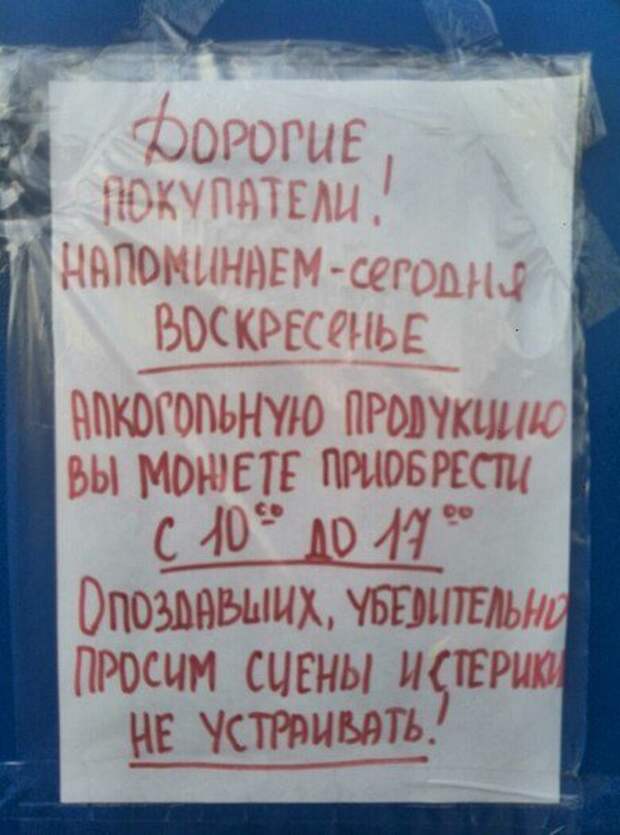 ДОРОГИЕ
ПОКУПАТЕЛИ!
НАПОМИНАЕМ - сегодня
ВОСКРЕСеНЬЕ
АЛКОГОЛЬНУЮ ПРОДУКЦИЮ
ВЫ МОЖЕТЕ ПРИОБРЕСТИ
С 10⁰⁰ ДО 17⁰⁰
ОПОЗДАВШИХ, УБЕДИТЕЛЬНО
ПРОСИМ СЦЕНЫ ИСТЕРИКИ
НЕ УСТРАИВАТЬ!